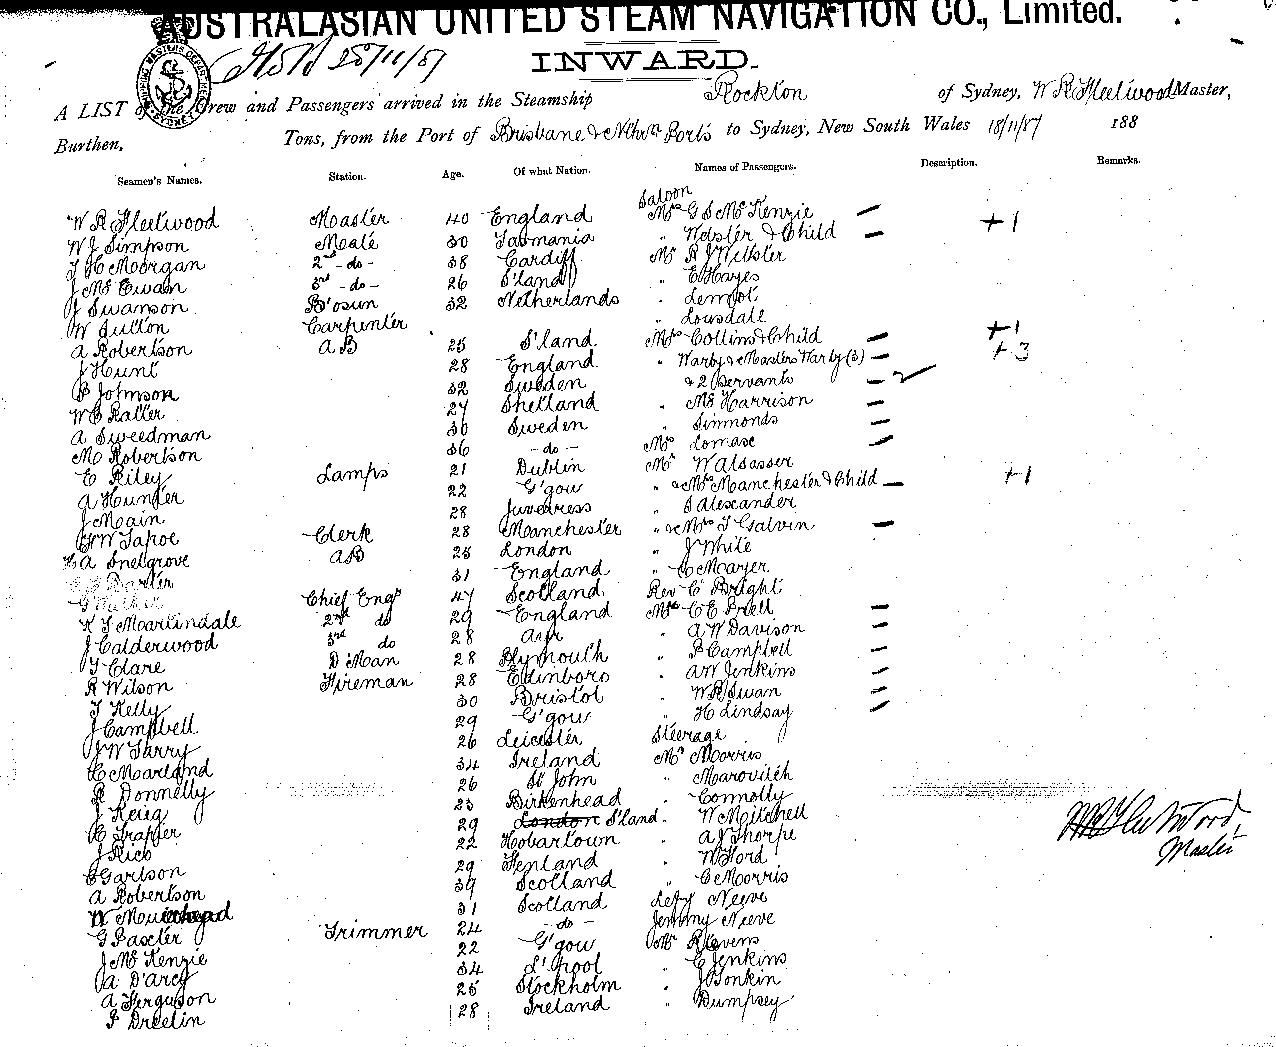 AUSTRALASIAN UNITED STEAM NAVIGATION CO., Limited.
28/11/87
INWARD.
A LIST of the Crew and Passengers arrived in the Steamship Rockton of Sydney, W R Fleetwood Master,
Burthen, Tons, from the Port of Brisbane & Nthn Ports to Sydney, New South Wales 18/11/87 188
Seamen's Names. Station. Age. Of what Nation. Names of Passengers. Description. Remarks.
Saloon
W R Fleetwood Master 40 England Mrs G S McKenzie
W J Simpson Mate 30 Tasmania " Webster & Child +1
J H Morgan 2nd -do- 38 Cardiff Mr R J Webster
J McEwan 3rd -do- 26 S'land " E Hayes
J Swanson B'osun 32 Netherlands "
W Sutton Carpenter " Lonsdale
A Robertson AB 25 S'land Mrs Collins & Child +1
J Hunt 28 England " Warby & Masters Warby (3) +3
P Johnson 32 Sweden & 2 Servants
27 Shetland " McHarrison
A Sweedman 30 Sweden " Simmonds
M Robertson 36 -do- Mrs Lomase
E Riley Lamps 21 Dublin Mr W Alsasser
A Hunter 22 G'gow " & Mrs Manchester & Child +1
J Main 28 " S Alexander
Clerk 28 Manchester " & Mrs T Galvin
A Snelgrove AB 25 London " J White
31 England " C Mayer
Chief Engr 47 Scotland Rev C Bright
K J Martindale 2nd do 29 England Mrs C E Prell
J Calderwood 3rd do 28 Ayr " A W Davison
T Clare D'Man 28 Plymouth " P Campbell
R Wilson Fireman 28 Edinboro " A W Jenkins
T Kelly 30 Bristol " W R Swan
J Campbell 29 G'gow " H Lindsay
J W Tarry 26 Leicester Steerage
34 Ireland Mr Morris
P Donnelly 26 St John " Marovitch
J Keig 23 Birkenhead " Connolly
C Trapper 29 London S'land " W Mitchell
J Rich 22 Hobartown " A J Thorpe
C Garlson 29 " W Ford
A Robertson 39 Scotland " C Morris
W 31 Scotland Neeve
G Paxter Trimmer 24 -do- Jenny Neeve
J McKenzie 22 G'gow Mr R Stevens
A D'Arcy 34 L'Pool " C Jenkins
A Ferguson 25 Stockholm " J Bonkin
28 Ireland " Dumpsey
W R Fleetwood,
Master